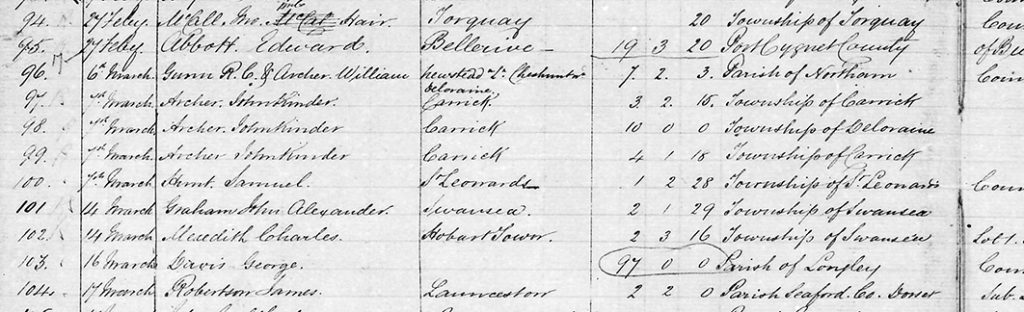 94. 27 Feby. McCall Jno. Hair Torquay 20 Township of Torquay Coun
95. 27 Feby. Abbott. Edward. Bellerive 19 3 20 Port Cygnet County of Bu
96. 6th March Gunn R. C. & Archer. William Newstead & Cheshunt 7. 2. 3. Parish of Northam Coun
Deloraine.
97. 7th March Archer. John Kinder. Carrick. 3. 2. 15. Township of Carrick
98. 7th March Archer. John Kinder Carrick 10 0 0 Township of Deloraine
99. 7th March Archer John Kinder Carrick 4 1 18 Township of Carrick
100. 7th March Hunt. Samuel. St Leonards 1 2 28 Township of St Leonards Coun
101 14 March Graham John Alexander. Swansea. 2 1 29 Township of Swansea
102. 14 March Meredith Charles. Hobart Town. 2 3 16 Township of Swansea Lot 1.
103. 16 March Davis George. 97 0 0 Parish of Longley Coun
104. 17 March Robertson James. Launceston 2 2 0 Parish Seaford. Co. Dorset Sub.